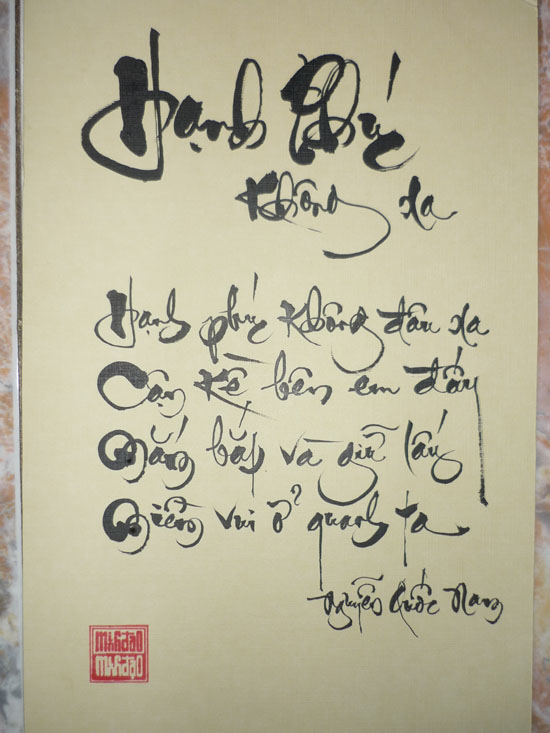 Hạnh Phúc
không xa
Hạnh phúc không đâu xa
Cận kề bên em đấy
Nắm bắt và giữ lấy
Niềm vui ở quanh ta
Nguyễn Quốc Nam
minhđạo
minhđạo